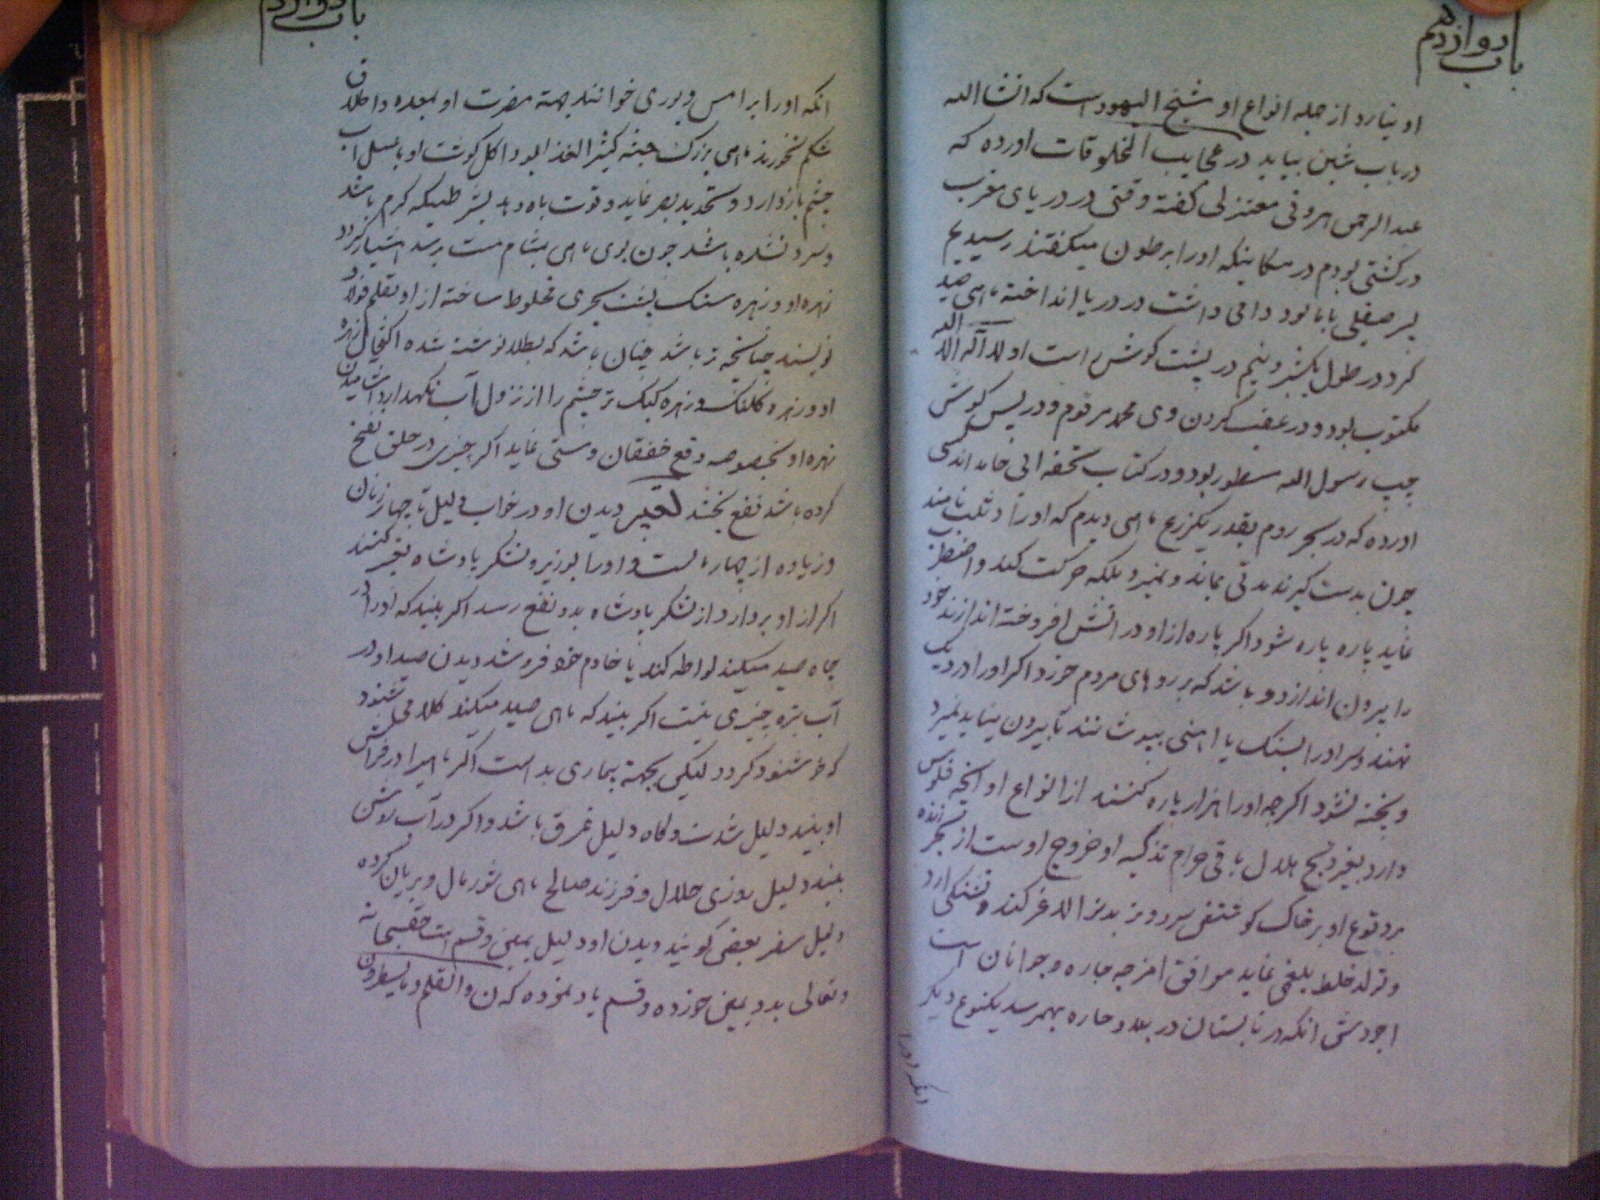 باب دوازدهم
او نیارد از جمله انواع او شیخ الیهود است که انشا الله
در باب شین بیاید در عجایب المخلوقات اورده که
عبدالرحمن هرونی معتزلی گفته وقتی در دریای مغرب
در کشتی بودم در مکانیکه اورا برطون میگفتند رسیدیم
پسر صقلی باما بود دامی داشت در دریا انداخته ماهی صید
کرد در طول یکشبر و نیم در پشت گوش راست او لا اله الا الله
مکتوب بود و در عقب گردن وی محمد مرقوم و در پس گوش
چپ رسول الله مسطور بود و در کتاب تحفه ابی حامد اندلسی
اورده که در بحر روم بقدر یکزرع ماهی دیدم که اورا نامند
چون بدست گیرند مدتی بماند و نمیرد بلکه حرکت کند و اضطراب
نماید پاره پاره شود اگر پاره از او در اتش افروخته اندازند خود
را بیرون اندازد و باشد که بر روهای مردم خورد اگر اورا در دیک
نهند و سر اورا بسنک یا اهنی بپوشانند تا بیرون نیاید نمیرد
و پخته نشود اگرچه اورا هزار پاره کنند از انواع او انچه فلوس
دارد بغیر ذبح حلال باقی حرام تذکیه او خروج اوست از بحر زنده
بر وقوع او بر خاک کو متنفس سرد و تر بدنرا لاغر کند و تشنگی ارد
و تولد خلط بلغمی نماید موافق امزجه حاره و جوانان است
اجودش انکه در تابستان در بلاد حاره بهمرسد یکنوع دیگر
باب دوازدهم
انکه اورا برامس و بربری خوانند بهمة مضرت او بمعده و اخلاق
شکم نخورند ماهی بزرک جثه کثیر الغذا بود اکل گوشت او با عسل اب
چشم بازدارد و تحدید بصر نماید و قوت باه دهد بشرطیکه گرم باشد
و سرد نشده باشد چون بوی ماهی بمشام مست برسد هشیار گردد
زهره او و زهره سنک پشت بحری مخلوط ساخته از او بقلم فولاد
نویسند چنانچه تر باشد چنان باشد که بطلا نوشته شده اکتحال زهره
او و زهره کلنک و زهره کبک تر چشم را از نزول آب نگهدارد اشامیدن
زهره او بخصوصه دفع خفقان و سستی نماید اگر چیزی در حلق نفخ
کرده باشد نفع بخشد تعبیر دیدن او در خواب دلیل تا چهار زنان
و زیاده از چهار مالست و اورا بوزیر و لشکر پادشاه تعبیر کنند
اگر از او بردارد از لشکر پادشاه بدو نفع رسد اگر بیند که اورا از
چاه صید میکند لواطه کند یا خادم خود فروشد دیدن صید او در
آب تیره چیزی نیست اگر بیند که ماهی صید میکند کلامی شنود
که خوشنود گردد لیکن بجهة بیماری بد است اگر ماهیرا در فراش
او بیند دلیل شدت و گاه دلیل غرق باشد و اگر در آب روشن
بیند دلیل روزی حلال و فرزند صالح ماهی شور مال و بریان کرده
دلیل سفر بعضی گویند دیدن او دلیل یمین و قسم است حقسبحانه
و تعالی بدو یمین خورده و قسم یاد نموده که ن والقلم و ما یسطرون